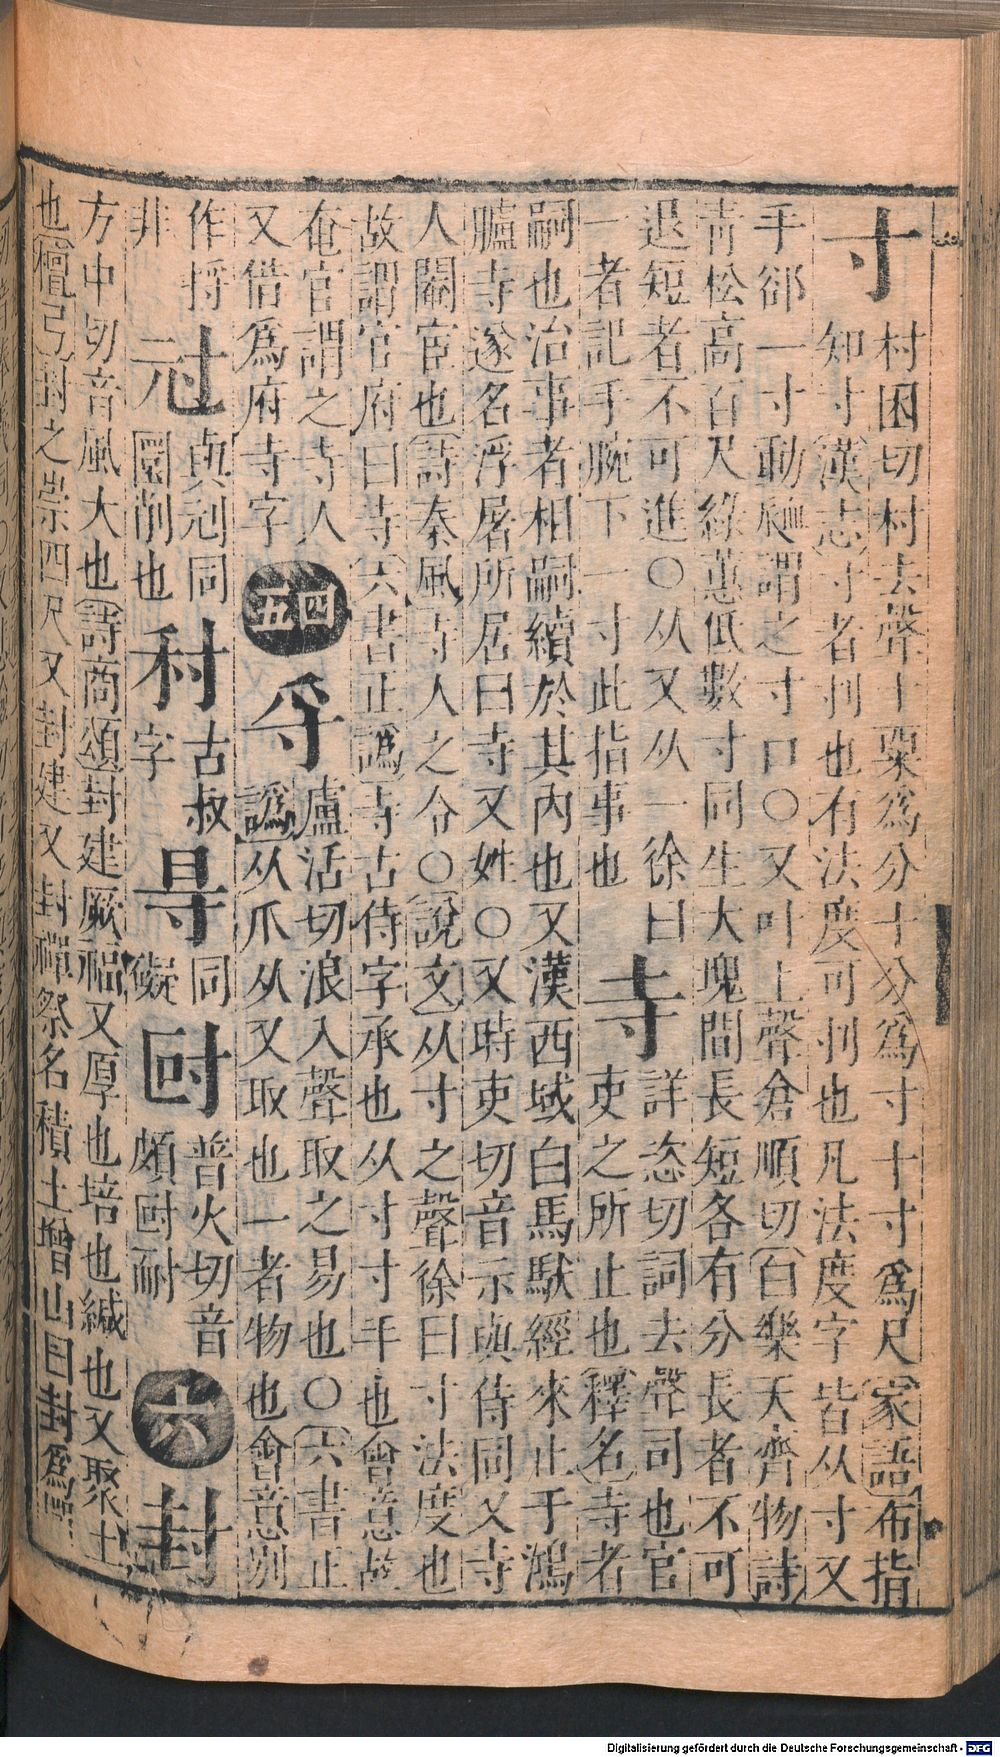 寸
村困切村去聲十粟爲分十分爲寸十寸爲尺家語布指
知寸漢志寸者忖也有法度可忖也凡法度字皆从寸又
手郤一寸動𧖴謂之寸口〇又叶上聲倉順切白樂天齊物詩
青松高百尺綠蕙低數寸同生大塊間長短各有分長者不可
退短者不可進〇从又从一徐曰
一者記手腕下一寸此指事也
寺
詳恣切詞去聲司也官
吏之所止也釋名寺者
嗣也治事者相嗣續於其內也又漢西域白馬馱經來止于鴻
臚寺遂名浮屠所居曰寺又姓〇又時吏切音示與侍同又寺
人閹宦也詩秦風寺人之令〇說文从寸之聲徐曰寸法度也
故謂官府曰寺六書正譌寺古侍字承也从寸寸手也會意故
奄官謂之寺人
又借爲府寺字
四
五
寽
盧活切浪入聲取之易也〇六書正
譌从爪从又取也一者物也會意別
作捋
非
𠜍
與刓同
圜削也
𥝢
古叔
字
㝵
同
礙
尀
普火切音
頗尀耐
六
封
方中切音風大也詩商頌封建厥福又厚也培也緘也又聚土
也檀弓封之崇四尺又封建又封禪祭名積土增山曰封爲
Digitalisierung gefördert durch die Deutsche Forschungsgemeinschaft - DFG